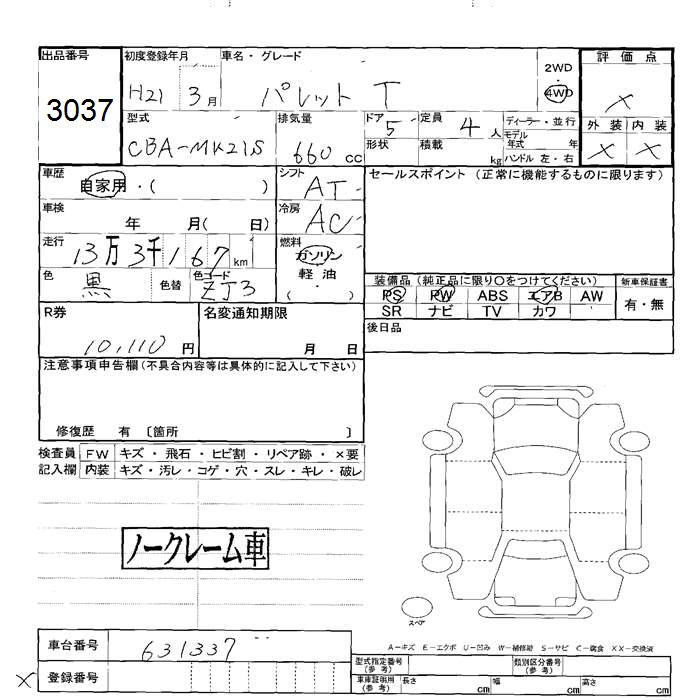 出品番号 初度登録年月 車名・グレード 2WD 評価点
3037 H21 3月 パレット T 4WD ×
型式 排気量 ドア 定員 ディーラー・並行 外装 内装
CBA-MK21S 660 cc 5 4人 モデル年式 年 × ×
形状 積載 kg ハンドル 左・右
車歴 シフト セールスポイント (正常に機能するものに限ります)
自家用・( ) AT
車検 年 月( 日) 冷房 AC
走行 13万3千167km 燃料 ガソリン
色 黒 色替 色コード ZJ3 軽油 ( )
装備品 (純正品に限り○をつけてください) 新車保証書
PS PW ABS エアB AW 有・無
SR ナビ TV カワ
R券 名変通知期限 後日品
10,110円 月 日
注意事項申告欄(不具合内容等は具体的に記入して下さい)
修復歴 有 〔箇所 〕
検査員 FW キズ・飛石・ヒビ割・リペア跡・×要
記入欄 内装 キズ・汚レ・コゲ・穴・スレ・キレ・破レ
ノークレーム車
スペア
A-キズ E-エクボ U-凹み W-補修跡 S-サビ C-腐食 XX-交換済
車台番号 631337
型式指定番号(参考) 類別区分番号(参考)
× 登録番号
車庫証明用(参考) 長さ cm 幅 cm 高さ cm